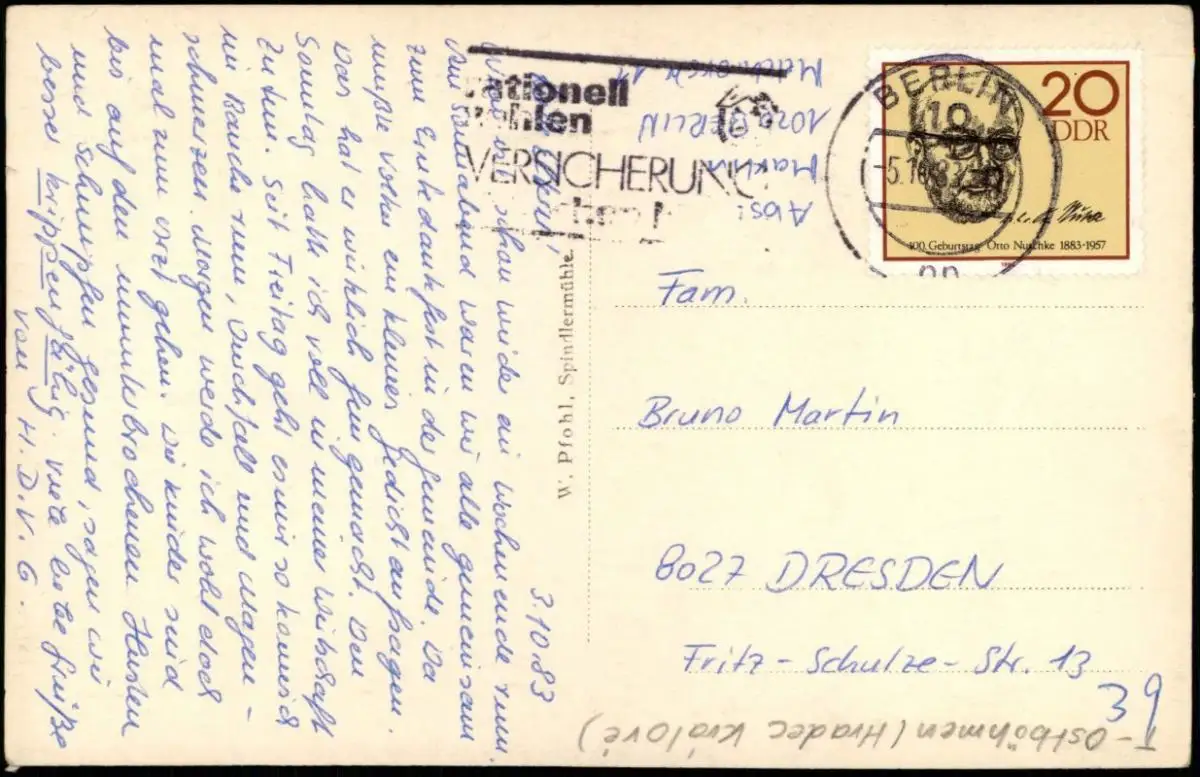 3.10.83
nun schon wieder ein Wochenende rum.
Am Sonnabend waren wir alle gemeinsam
zum Erntedankfest in der Gemeinde. Da
mußte Volker ein kleines Gedicht aufsagen.
Das hat er wirklich fein gemacht. Den
Sonntag hatte ich voll in meiner Wirtschaft
zu tun. Seit Freitag geht es mir so komisch
im Bauch rum, Durchfall und Magen-
schmerzen. Morgen werde ich wohl doch
mal zum Arzt gehen. Die Kinder sind
bis auf den ununterbrochenen Husten
und Schnupfen gesund, sagen wir
besser krippenfähig. Viele liebe Grüße
von H. D. V. C.
W. Pfohl, Spindlermühle.
rationell
wohlen
VERSICHERUNG
Abs:
Martin
1020 BERLIN
BERLIN
10
-5.10.83
20
DDR
100. Geburtstag Otto Nuschke 1883-1957
Fam.
Bruno Martin
8027 DRESDEN
Fritz-Schulze-Str. 13
39
- Ostböhmen (Hradec Králové)